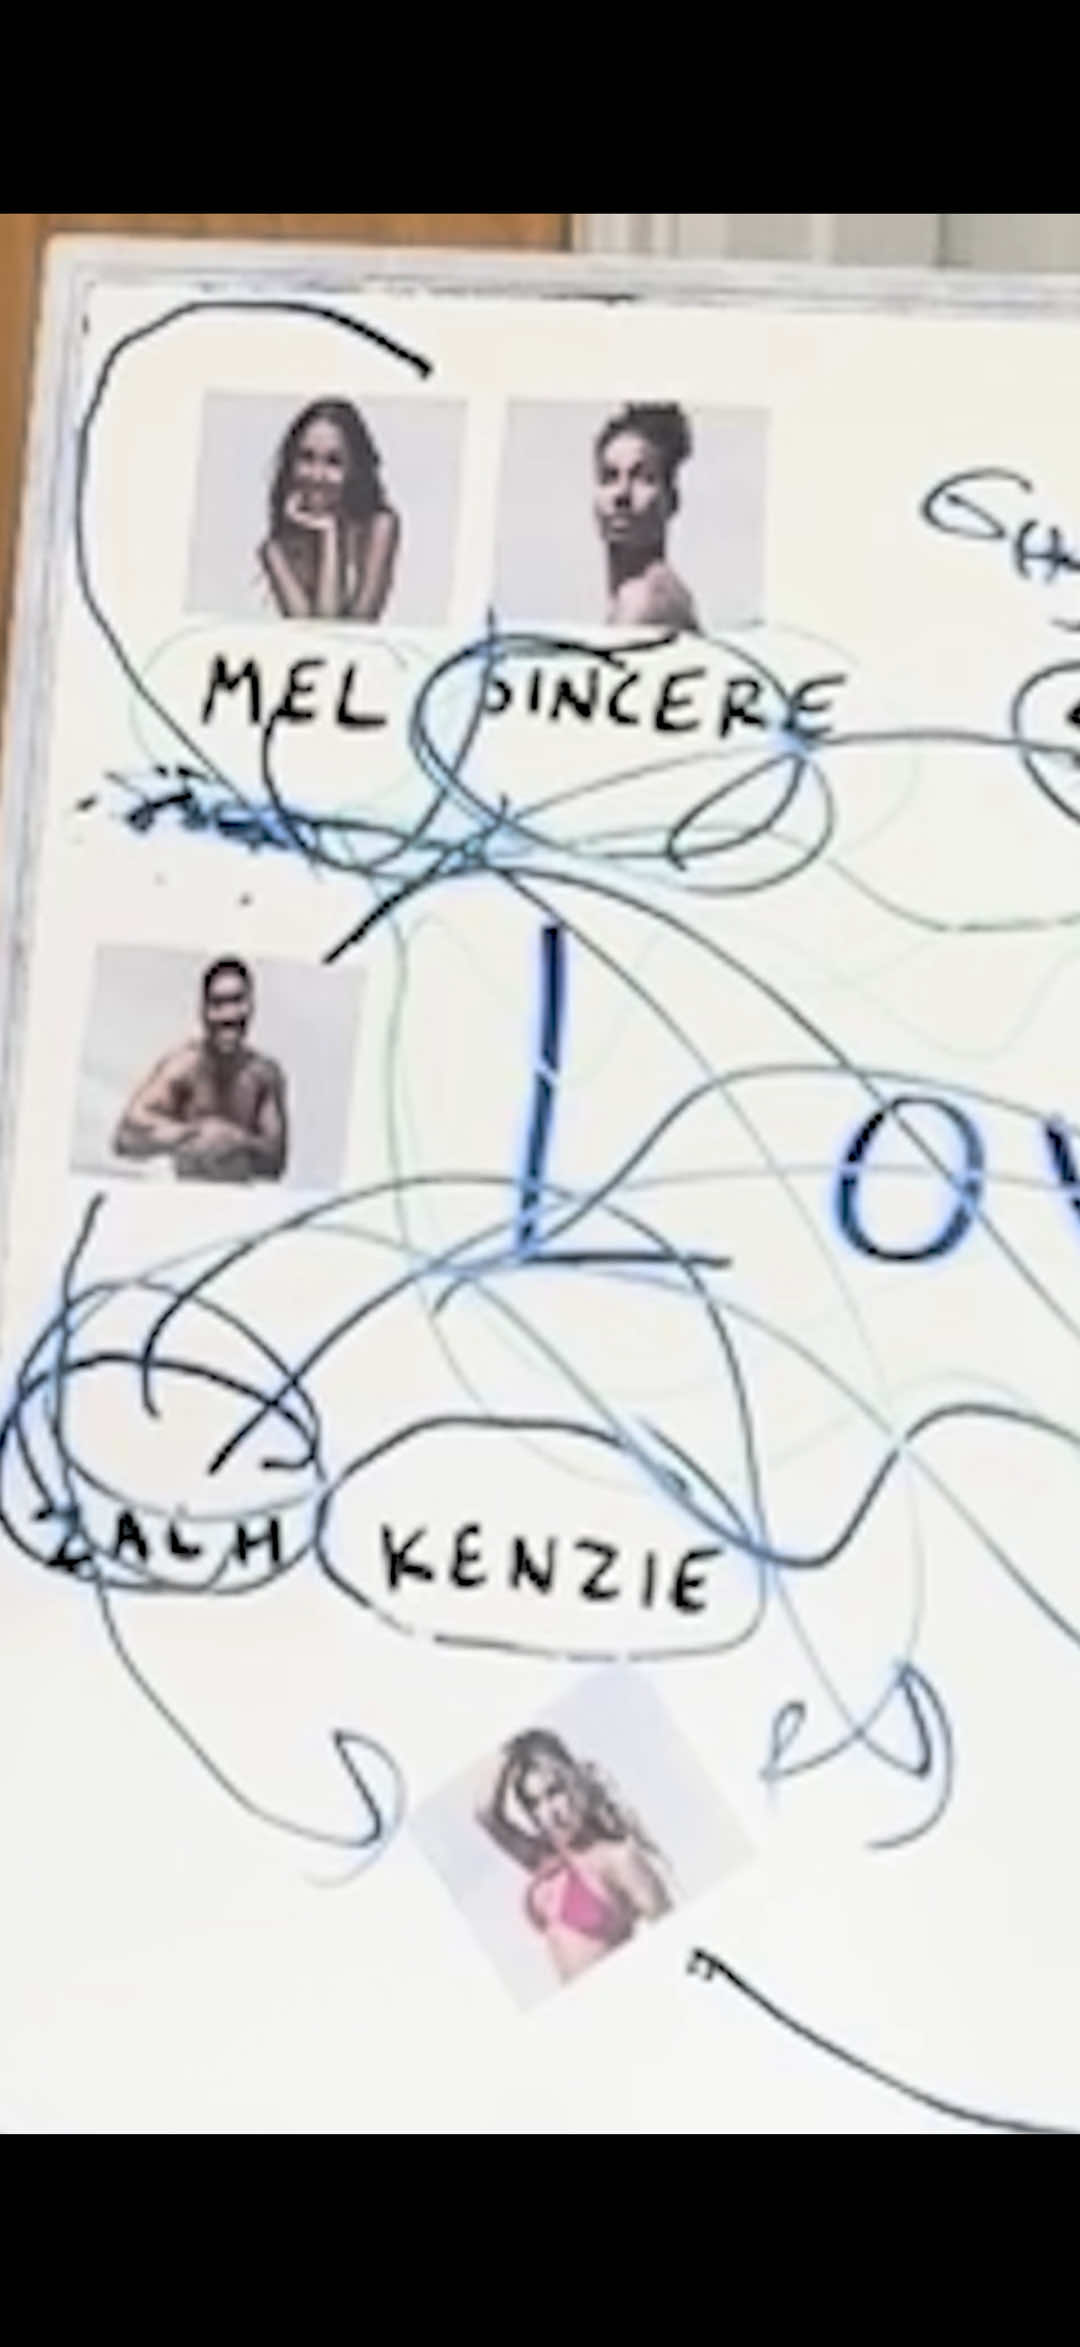 MEL SINCERE
LO
ZACH KENZIE